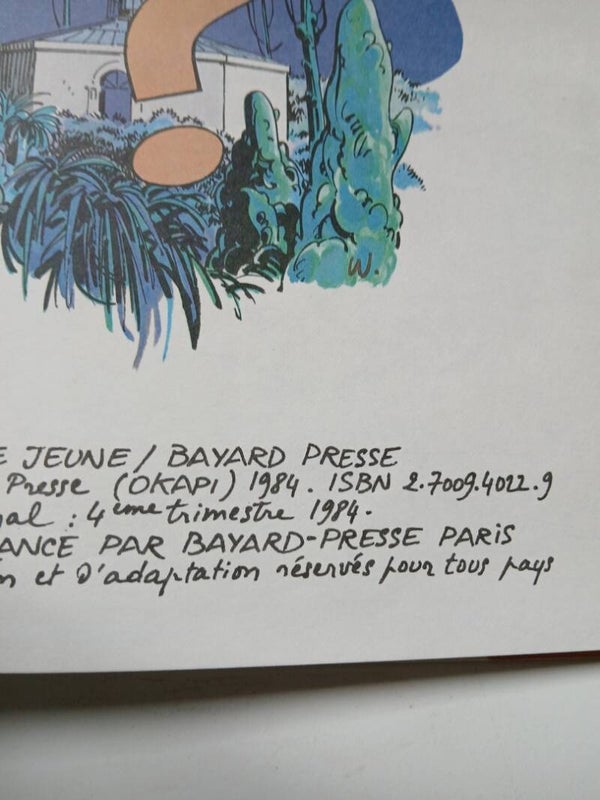 ?
W.
E JEUNE / BAYARD PRESSE
Presse (OKAPI) 1984. ISBN 2.7009.4022.9
gal : 4ème trimestre 1984.
ANCE PAR BAYARD-PRESSE PARIS
n et d'adaptation réservés pour tous pays